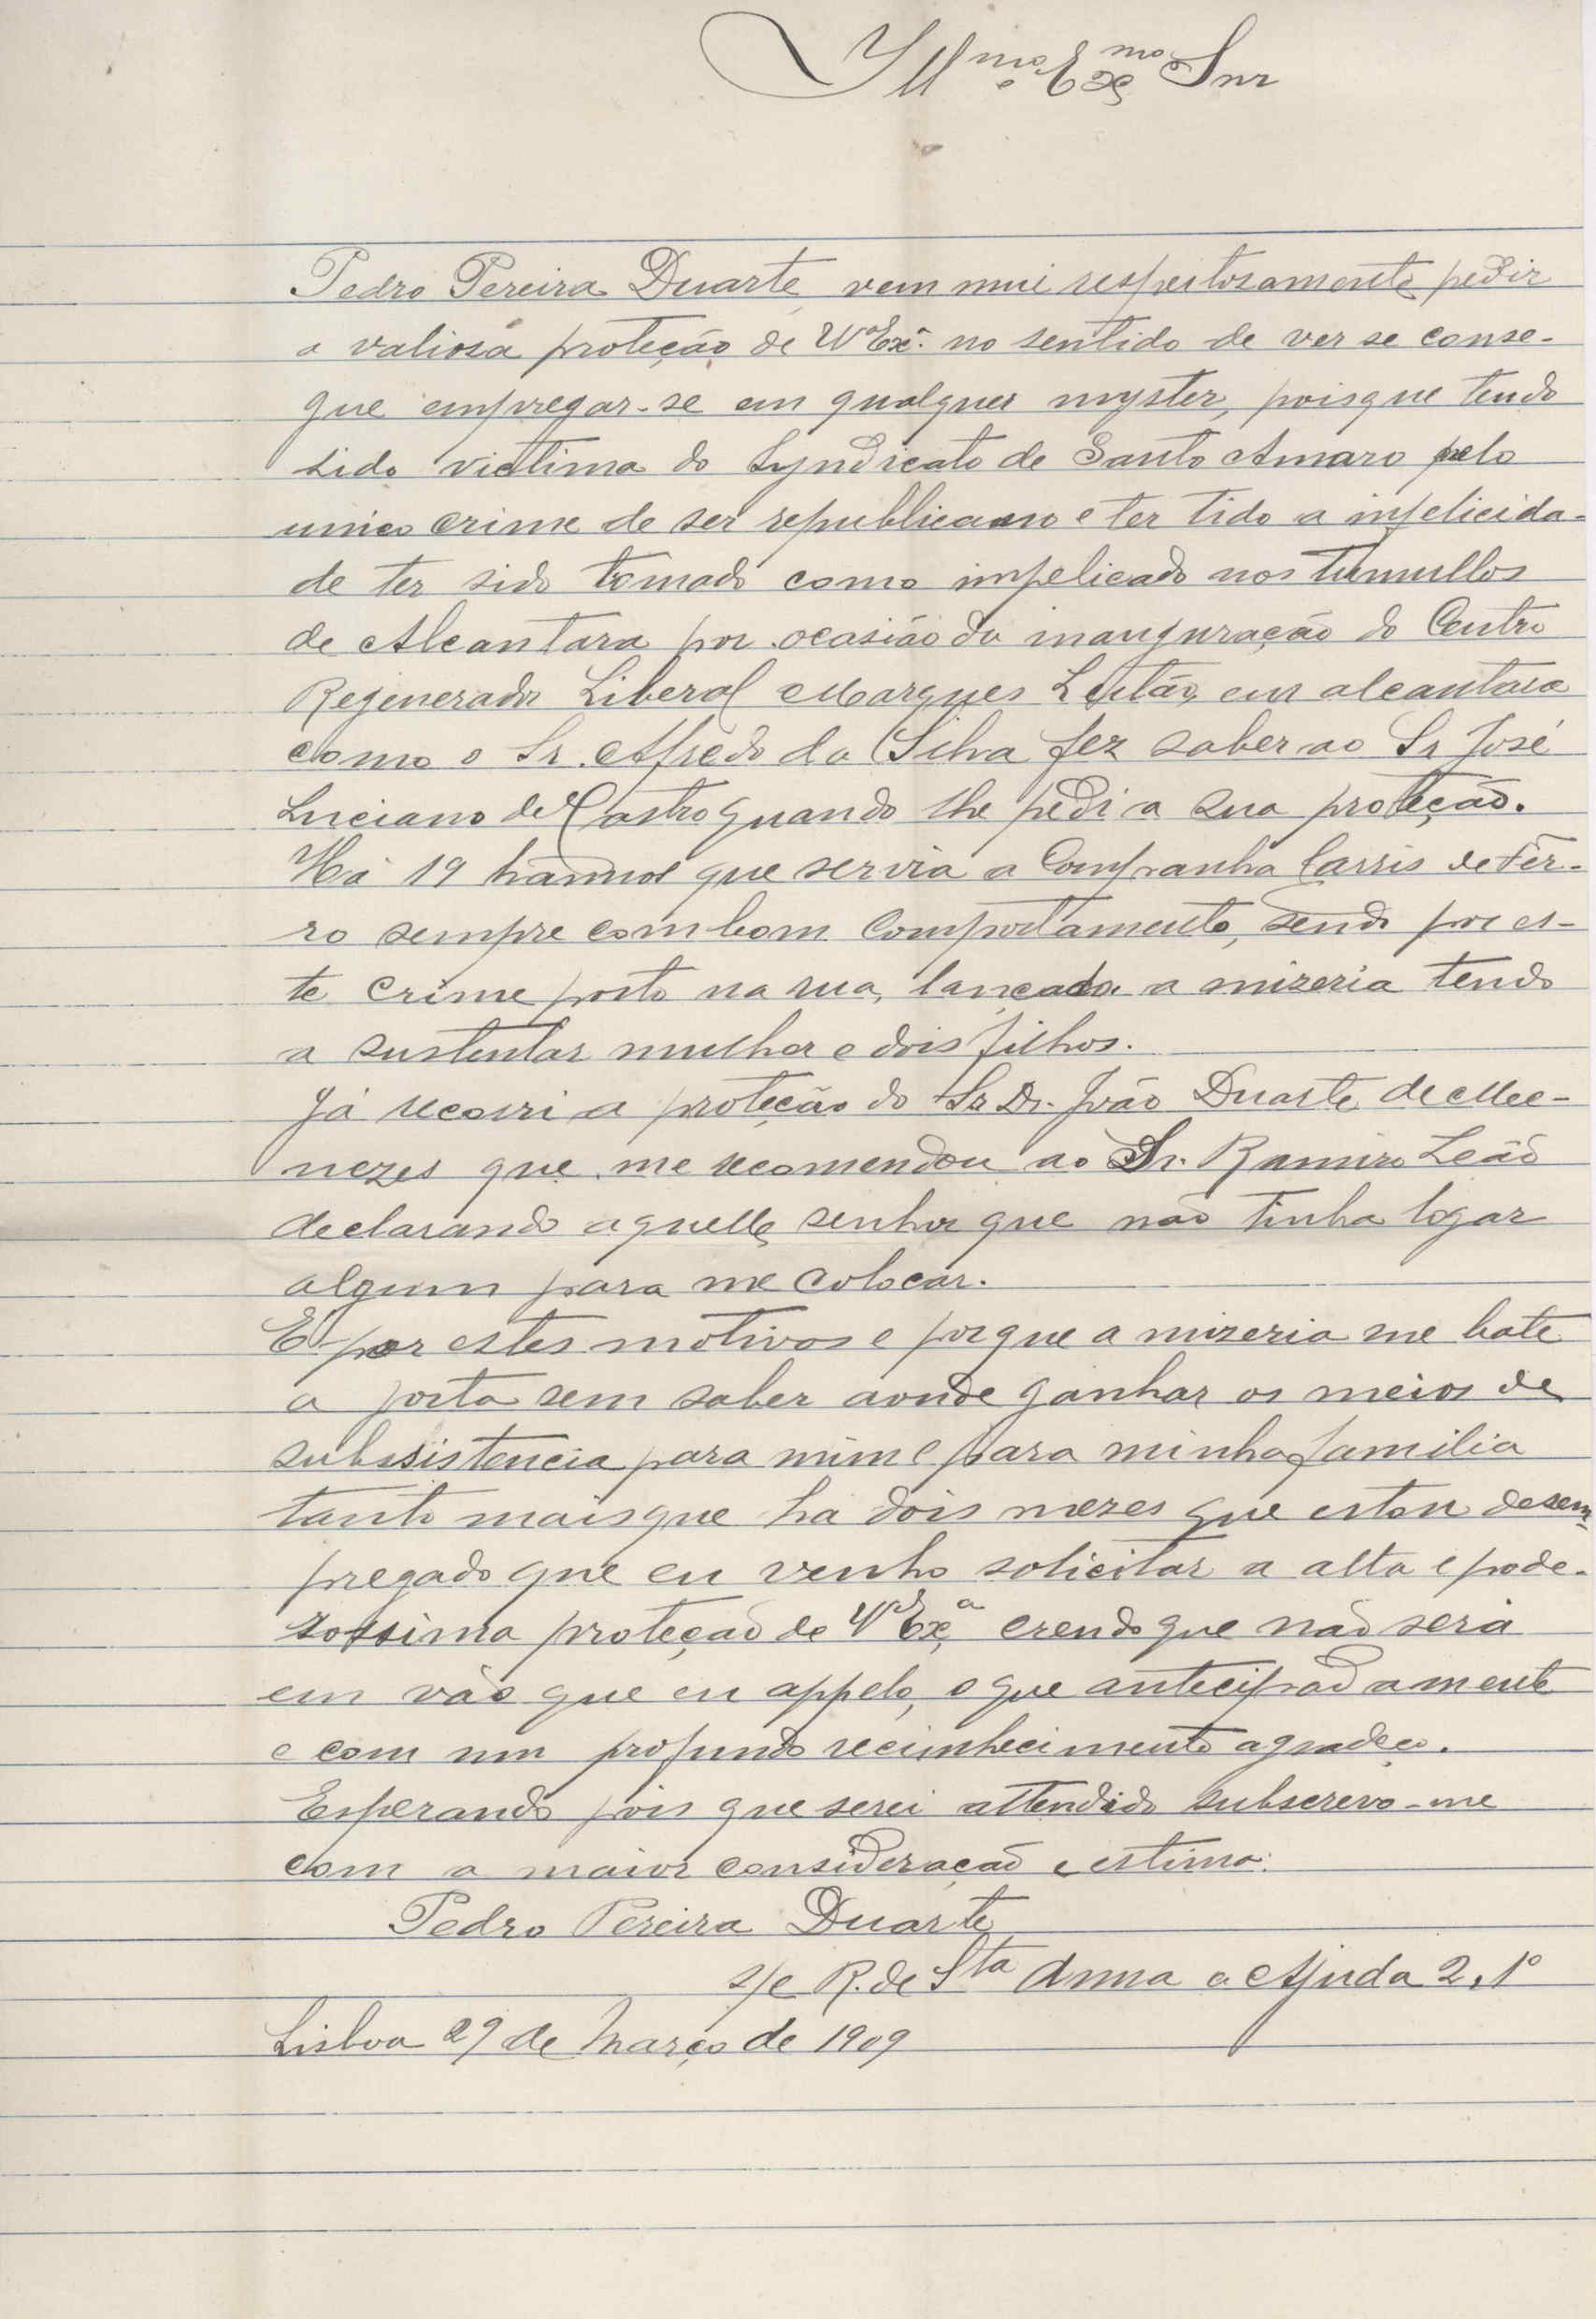 Illmo e Exmo Snr
Pedro Pereira Duarte, vem mui respeitosamente pedir
a valiosa proteção de V Exª. no sentido de ver se conse-
gue empregar-se em qualquer myster, poisque tendo
sido victima do Syndicato de Santo Amaro pelo
unico crime de ser republicano e ter tido a infelicida-
de ter sido tomado como impelicado nos tumullos
de Alcantara por ocasião da inauguração do Centro
Regenerador Liberal Marques Leitão, em alcantara
como o Sr. Alfredo da Silva fez saber ao Sr José
Luciano de Castro quando lhe pedi a sua proteção.
Há 19 hannos que servia a Companha Carris de Fer-
ro sempre com bom comportamento, sendo por es-
te crime posto na rua, lançado a mizeria tendo
a sustentar mulher e dois filhos.
Já recorri a proteção do Sr Dr. João Duarte de Me-
nezes que me recomendou ao Sr. Ramiro Leão
declarando aquelle senhor que não tinha logar
algum para me colocar.
E por estes motivos e porque a mizeria me bate
a porta sem saber aonde ganhar os meios de
subsistencia para mim e para minha familia
tanto mais que ha dois mezes que estou desem-
pregado que eu venho solicitar a alta e pode-
rossima proteção de V Exª, crendo que não será
em vão que eu appelo, o que antecipadamente
e com um profundo recinhecimento agradeço.
Esperando pois que serei attendido subscrevo-me
com a maior consideração e estima.
Pedro Pereira Duarte
s/c R. de Sta Anna a Ajuda 2, 1º
Lisboa 29 de Março de 1909